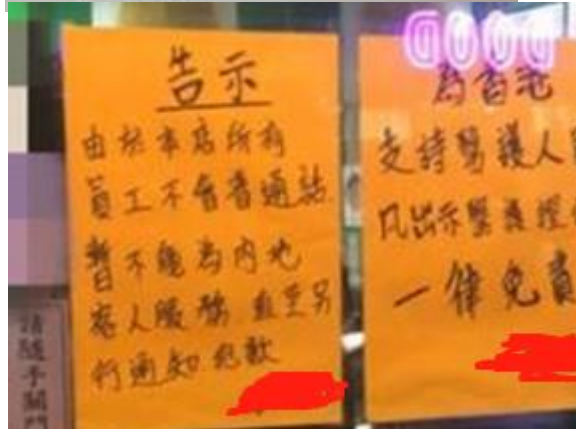 GOOD
告示
由於本店所有
員工不會普通話
暫不能為內地
客人服務 直至另
行通知 抱歉
為香港
支持醫護人
凡出示醫護證
一律免費
請隨手關門